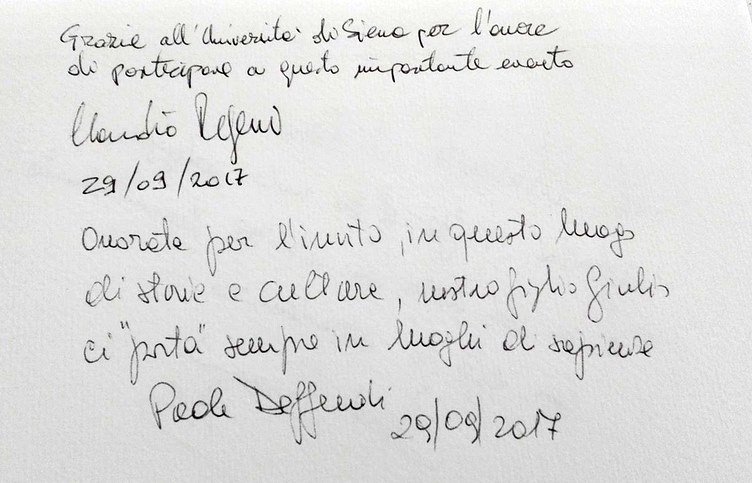 Grazie all'Università di Siena per l'onore
di partecipare a questo importante evento
Claudio Regeni
29/09/2017
Onorata per l'invito, in questo luogo
di storie e culture, nostro figlio Giulio
ci "porta" sempre in luoghi di sapienza
Paola Deffendi 29/09/2017